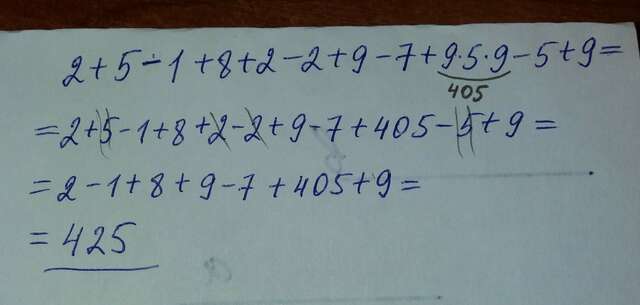 2+5÷1+8+2-2+9-7+9·5·9-5+9=
405
=2+5-1+8+2-2+9-7+405-5+9=
=2-1+8+9-7+405+9=
=425